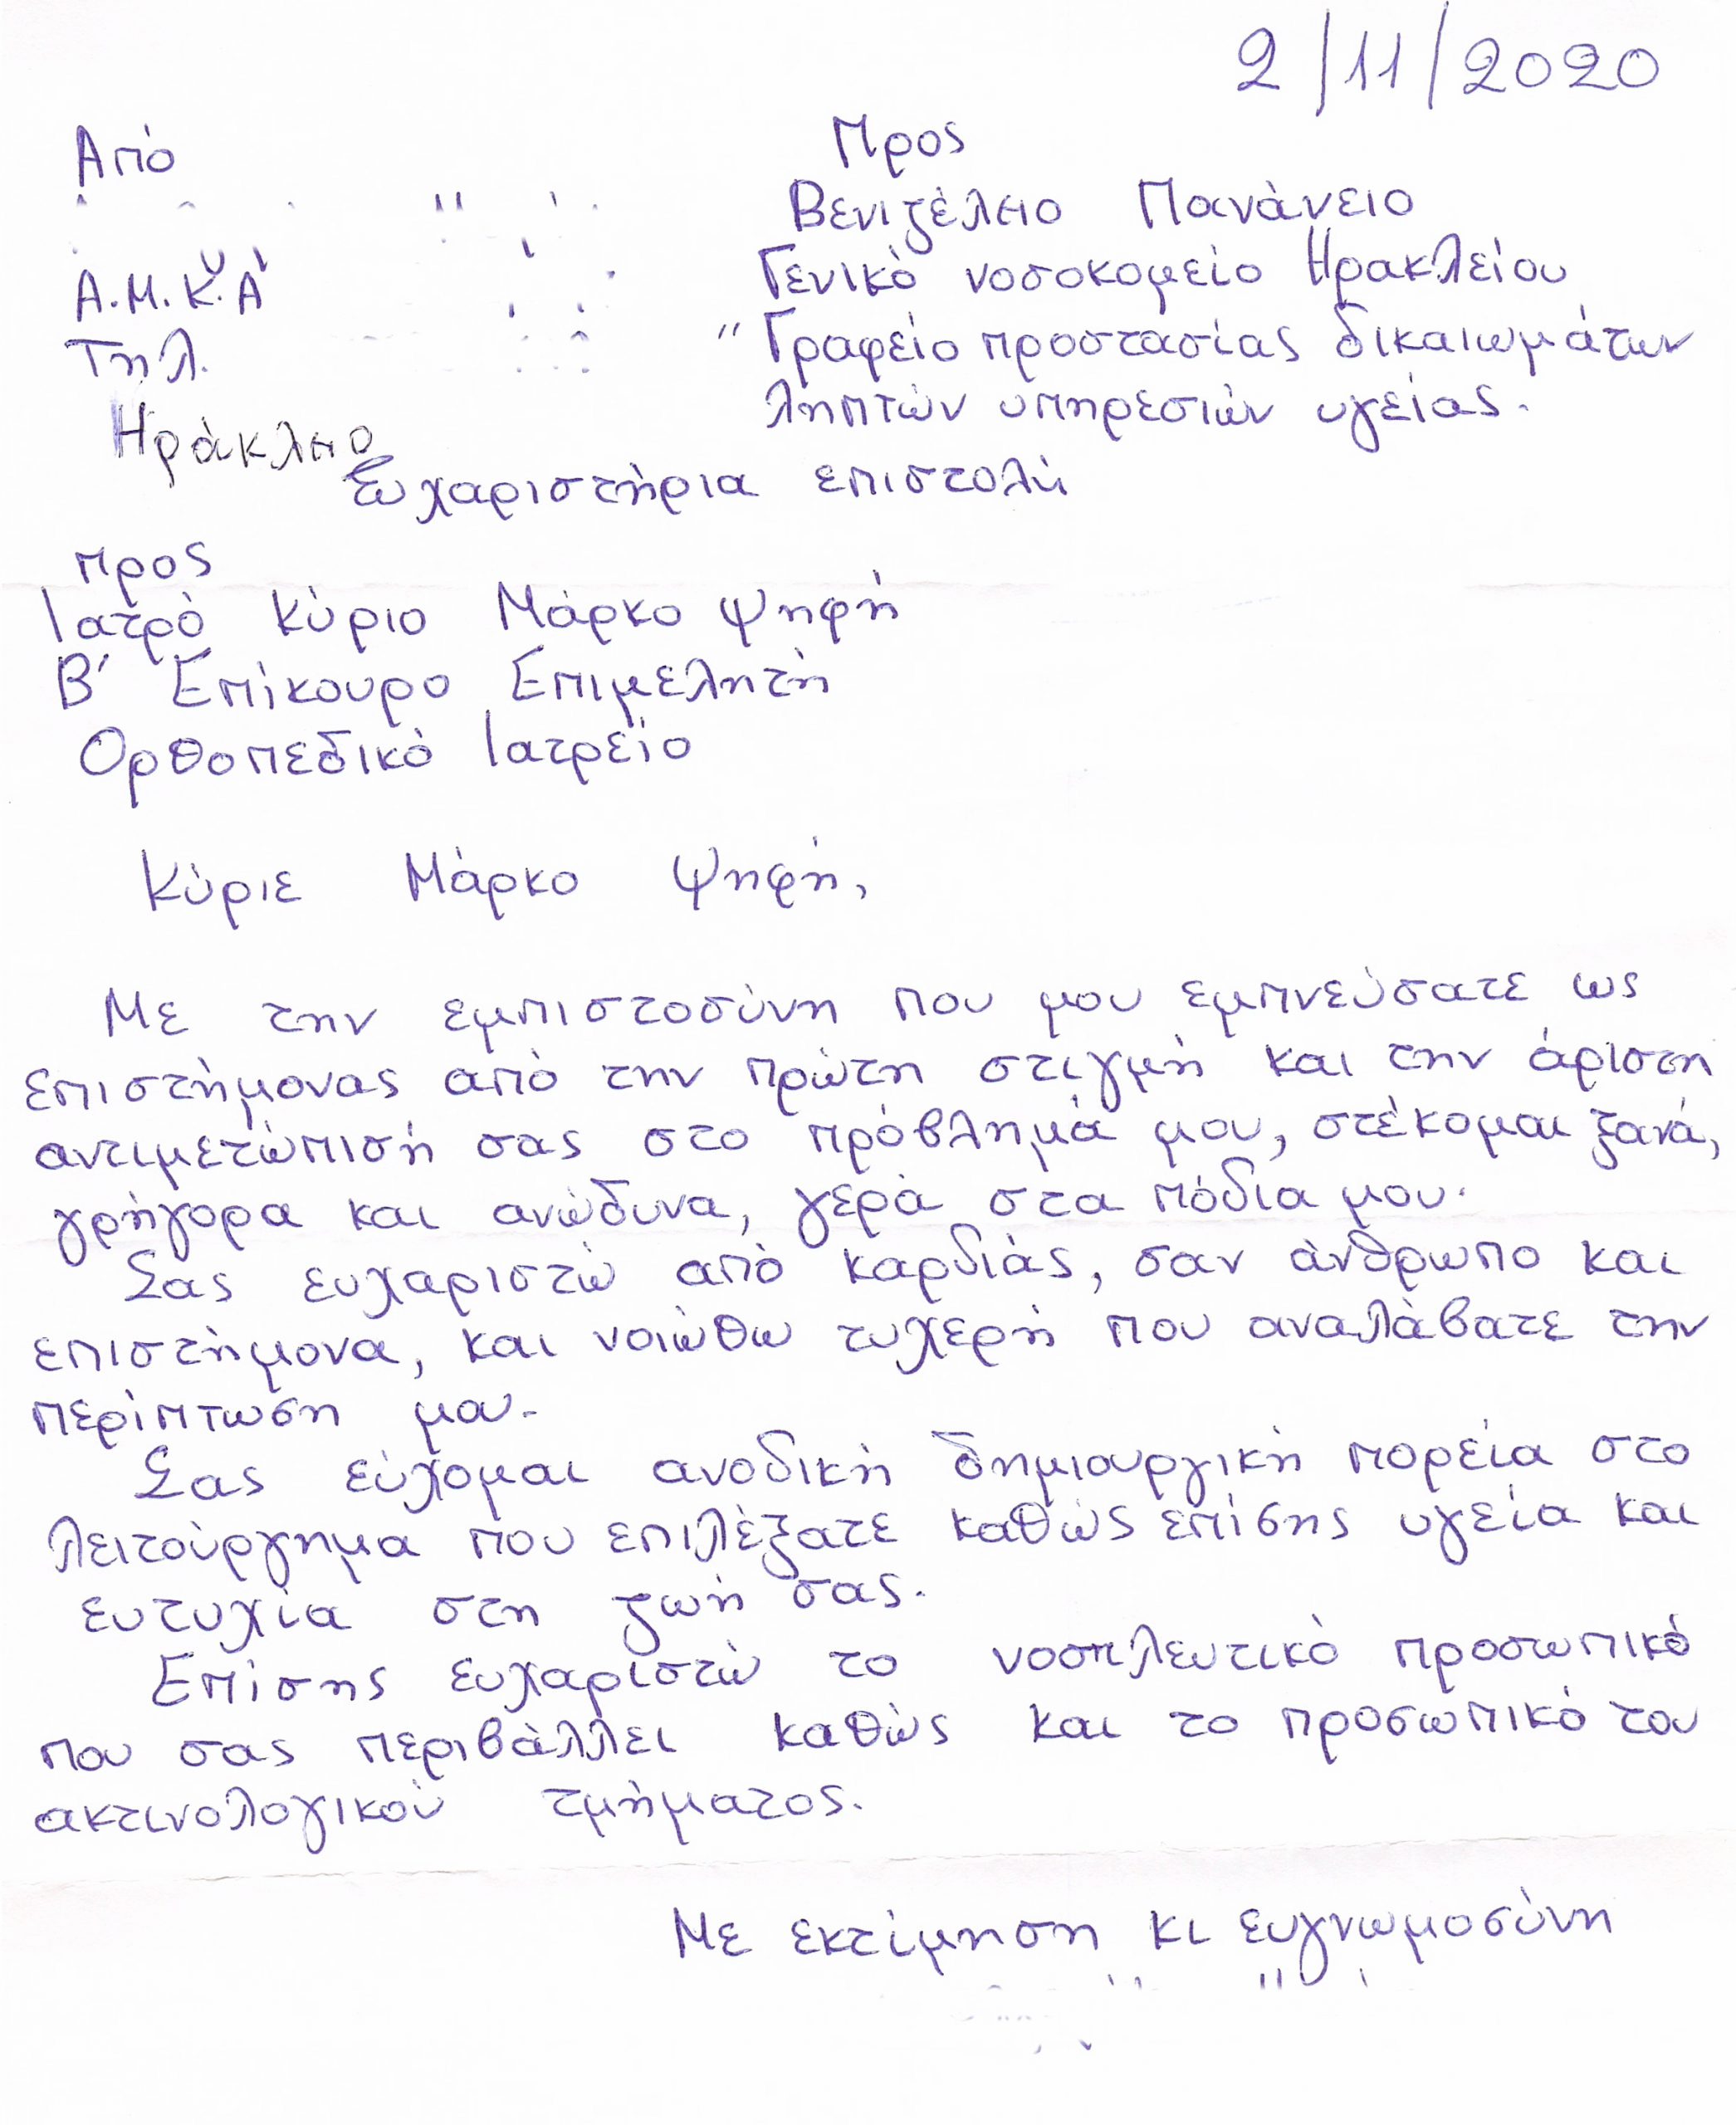 2/11/2020
Από
Προς
Βενιζέλειο Πανάνειο
Γενικό νοσοκομείο Ηρακλείου
Α.Μ.Κ.Α
Τηλ.
"Γραφείο προστασίας δικαιωμάτων
ληπτών υπηρεσιών υγείας.
Ηράκλειο
Ευχαριστήρια επιστολή
προς
Ιατρό Κύριο Μάρκο Ψηφή
Β' Επίκουρο Επιμελητή
Ορθοπεδικό Ιατρείο
Κύριε Μάρκο Ψηφή,
Με την εμπιστοσύνη που μου εμπνεύσατε ως
επιστήμονας από την πρώτη στιγμή και την άριστη
αντιμετώπισή σας στο πρόβλημά μου, στέκομαι ξανά,
γρήγορα και ανώδυνα, γερά στα πόδια μου.
Σας ευχαριστώ από καρδιάς, σαν άνθρωπο και
επιστήμονα, και νοιώθω τυχερή που αναλάβατε την
περίπτωση μου.
Σας εύχομαι ανοδική δημιουργική πορεία στο
λειτούργημα που επιλέξατε καθώς επίσης υγεία και
ευτυχία στη ζωή σας.
Επίσης ευχαριστώ το νοσηλευτικό προσωπικό
που σας περιβάλλει καθώς και το προσωπικό του
ακτινολογικού τμήματος.
Με εκτίμηση κι ευγνωμοσύνη